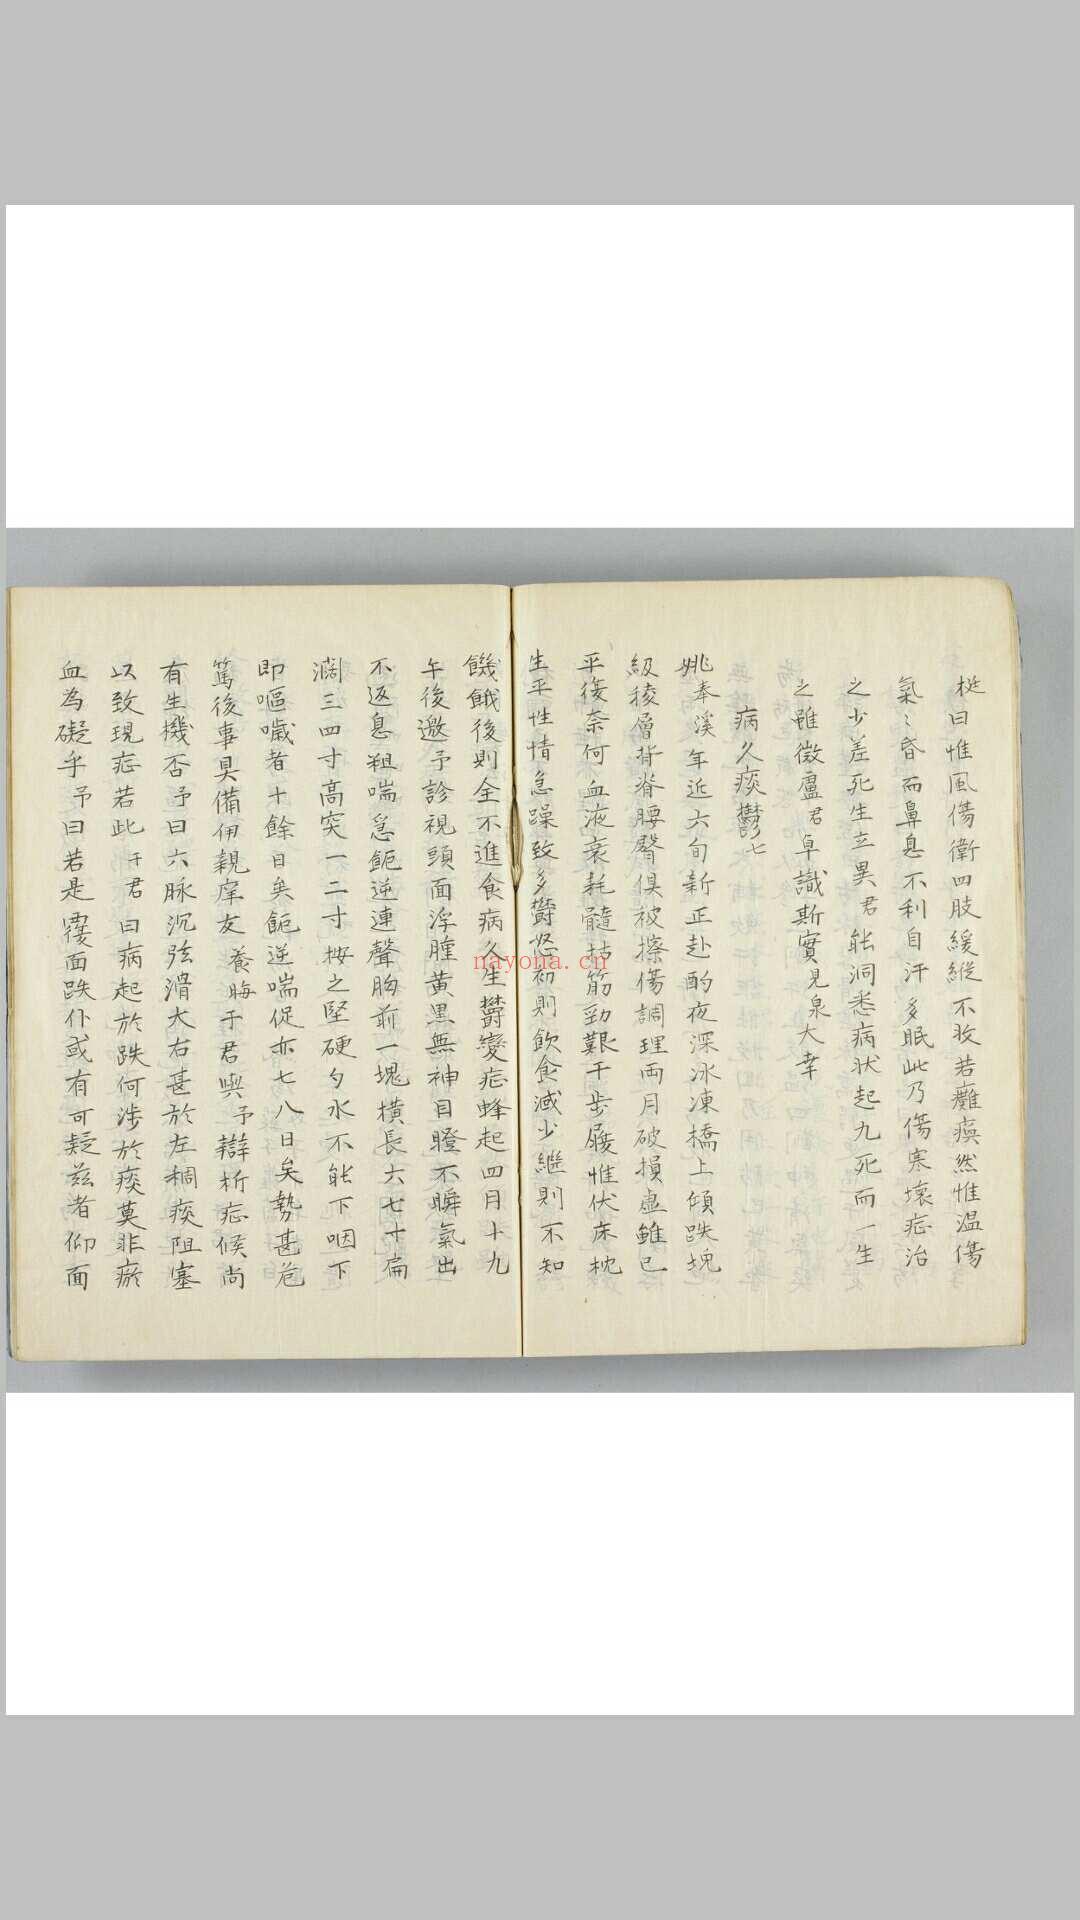 梃曰惟風傷衛四肢緩縱不收若癱瘓然惟溫傷
氣〻昏而鼻息不利自汗多眠此乃傷寒壞症治
之少差死生立異君能洞悉病狀起九死而一生
之雖微盧君卓識斯實見泉大幸
病久痰鬱七
姚奉溪年近六旬新正赴酌夜深冰凍橋上傾跌塊
級稜層背脊腰臀俱被擦傷調理両月破損處雖已
平復奈何血液衰耗髓枯筋勁艱于步履惟伏床枕
生平性情急躁致多鬱怒初則飲食減少繼則不知
饑餓後則全不進食病久生鬱變症蜂起四月十九
午後邀予診視頭面浮腫黃黑無神目瞪不瞬氣出
不返息粗喘急呃逆連聲胸前一塊橫長六七寸扁
濶三四寸高突一二寸按之堅硬勺水不能下咽下
即嘔噦者十餘日矣呃逆喘促亦七八日矣勢甚危
篤後事具備伊親摩友養晦于君與予辯析症候尚
有生機否予曰六脉沉弦滑大右甚於左稠痰阻塞
以致現症若此于君曰病起於跌何涉於痰莫非瘀
血為礙乎予曰若是覆面跌仆或有可疑茲者仰面
nayona.cn